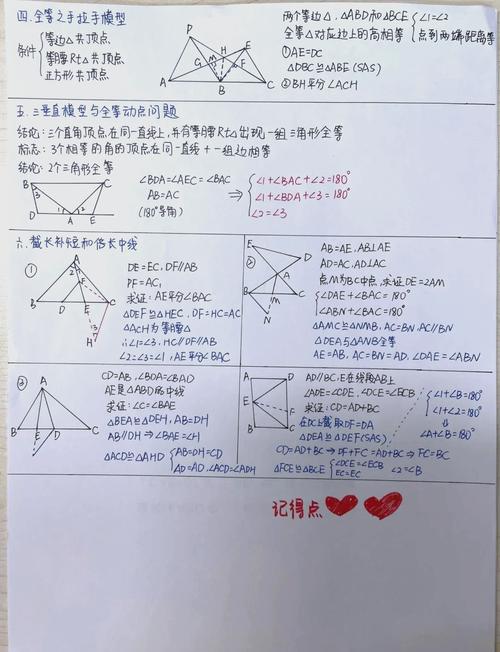 四.全等之手拉手模型
条件 { 等边△共顶点
等腰Rt△共顶点
正方形共顶点
D E H G M F A B C
两个等边△, △ABD和△BCE { ∠1=∠2
全等△对应边上的高相等 点到两端距离等
①AE=DC
△DBC≌△ABE(SAS)
②BH平分∠AHC
五.三垂直模型与全等动点问题
结论:三个直角顶点在同一直线上,并有等腰Rt△出现一组三角形全等
标志:3个相等的角的顶点在同一直线+一组边相等
结论:2个三角形全等
B C 3 1 2 D A E
∠BDA=∠AEC=∠BAC
AB=AC
(180°导角)
⇒ { ∠1+∠BAC+∠2=180°
∠1+∠BDA+∠3=180°
∠2=∠3
六.截长补短和倍长中线
①
A B D E C F H
DE=EC, DF//AB
DF=AC,
求证:AE平分∠BAC
△DEF≌△HEC, DF=HC=AC
△ACH为等腰△
∴∠1=∠3, HC//DF//AB
∠2=∠3=∠1, AE平分∠BAC
②
E D A B M C N
AB=AE, AB⊥AE
AD=AC, AD⊥AC
点M为BC中点,求证DE=2AM
{ ∠DAE+∠BAC=180°
∠ABN+∠BAC=180°
△AMC≌△NMB, AC=BN, AC//BN
△DEA与△ANB全等
AE=AB, AC=BN=AD, ∠DAE=∠ABN
③
A B E D C
CD=AB, ∠BDA=∠BAD
AE是△ABD的中线
求证:∠C=∠BAE
△BEA≌△DEH, AB=DH
AB//DH ⇒ ∠BAE=∠H
△ACD≌△AHD { AB=DH=CD
AD=AD, ∠ADC=∠ADH
A D E F B C
AD//BC, E在线段AB上
∠ADE=∠CDE, ∠DCE=∠ECB
求证:CD=AD+BC
在DC上截取DF=DA
△DEA≌△DEF(SAS)
{ ∠1+∠B=180°
∠1+∠2=180°
⇓
∠A+∠B=180°
CD=AD+BC ⇒ DF+FC=AD+BC ⇒ FC=BC
△FCE≌△BCE { ∠DCE=∠ECB
EC=EC
∠2=∠B
记得点